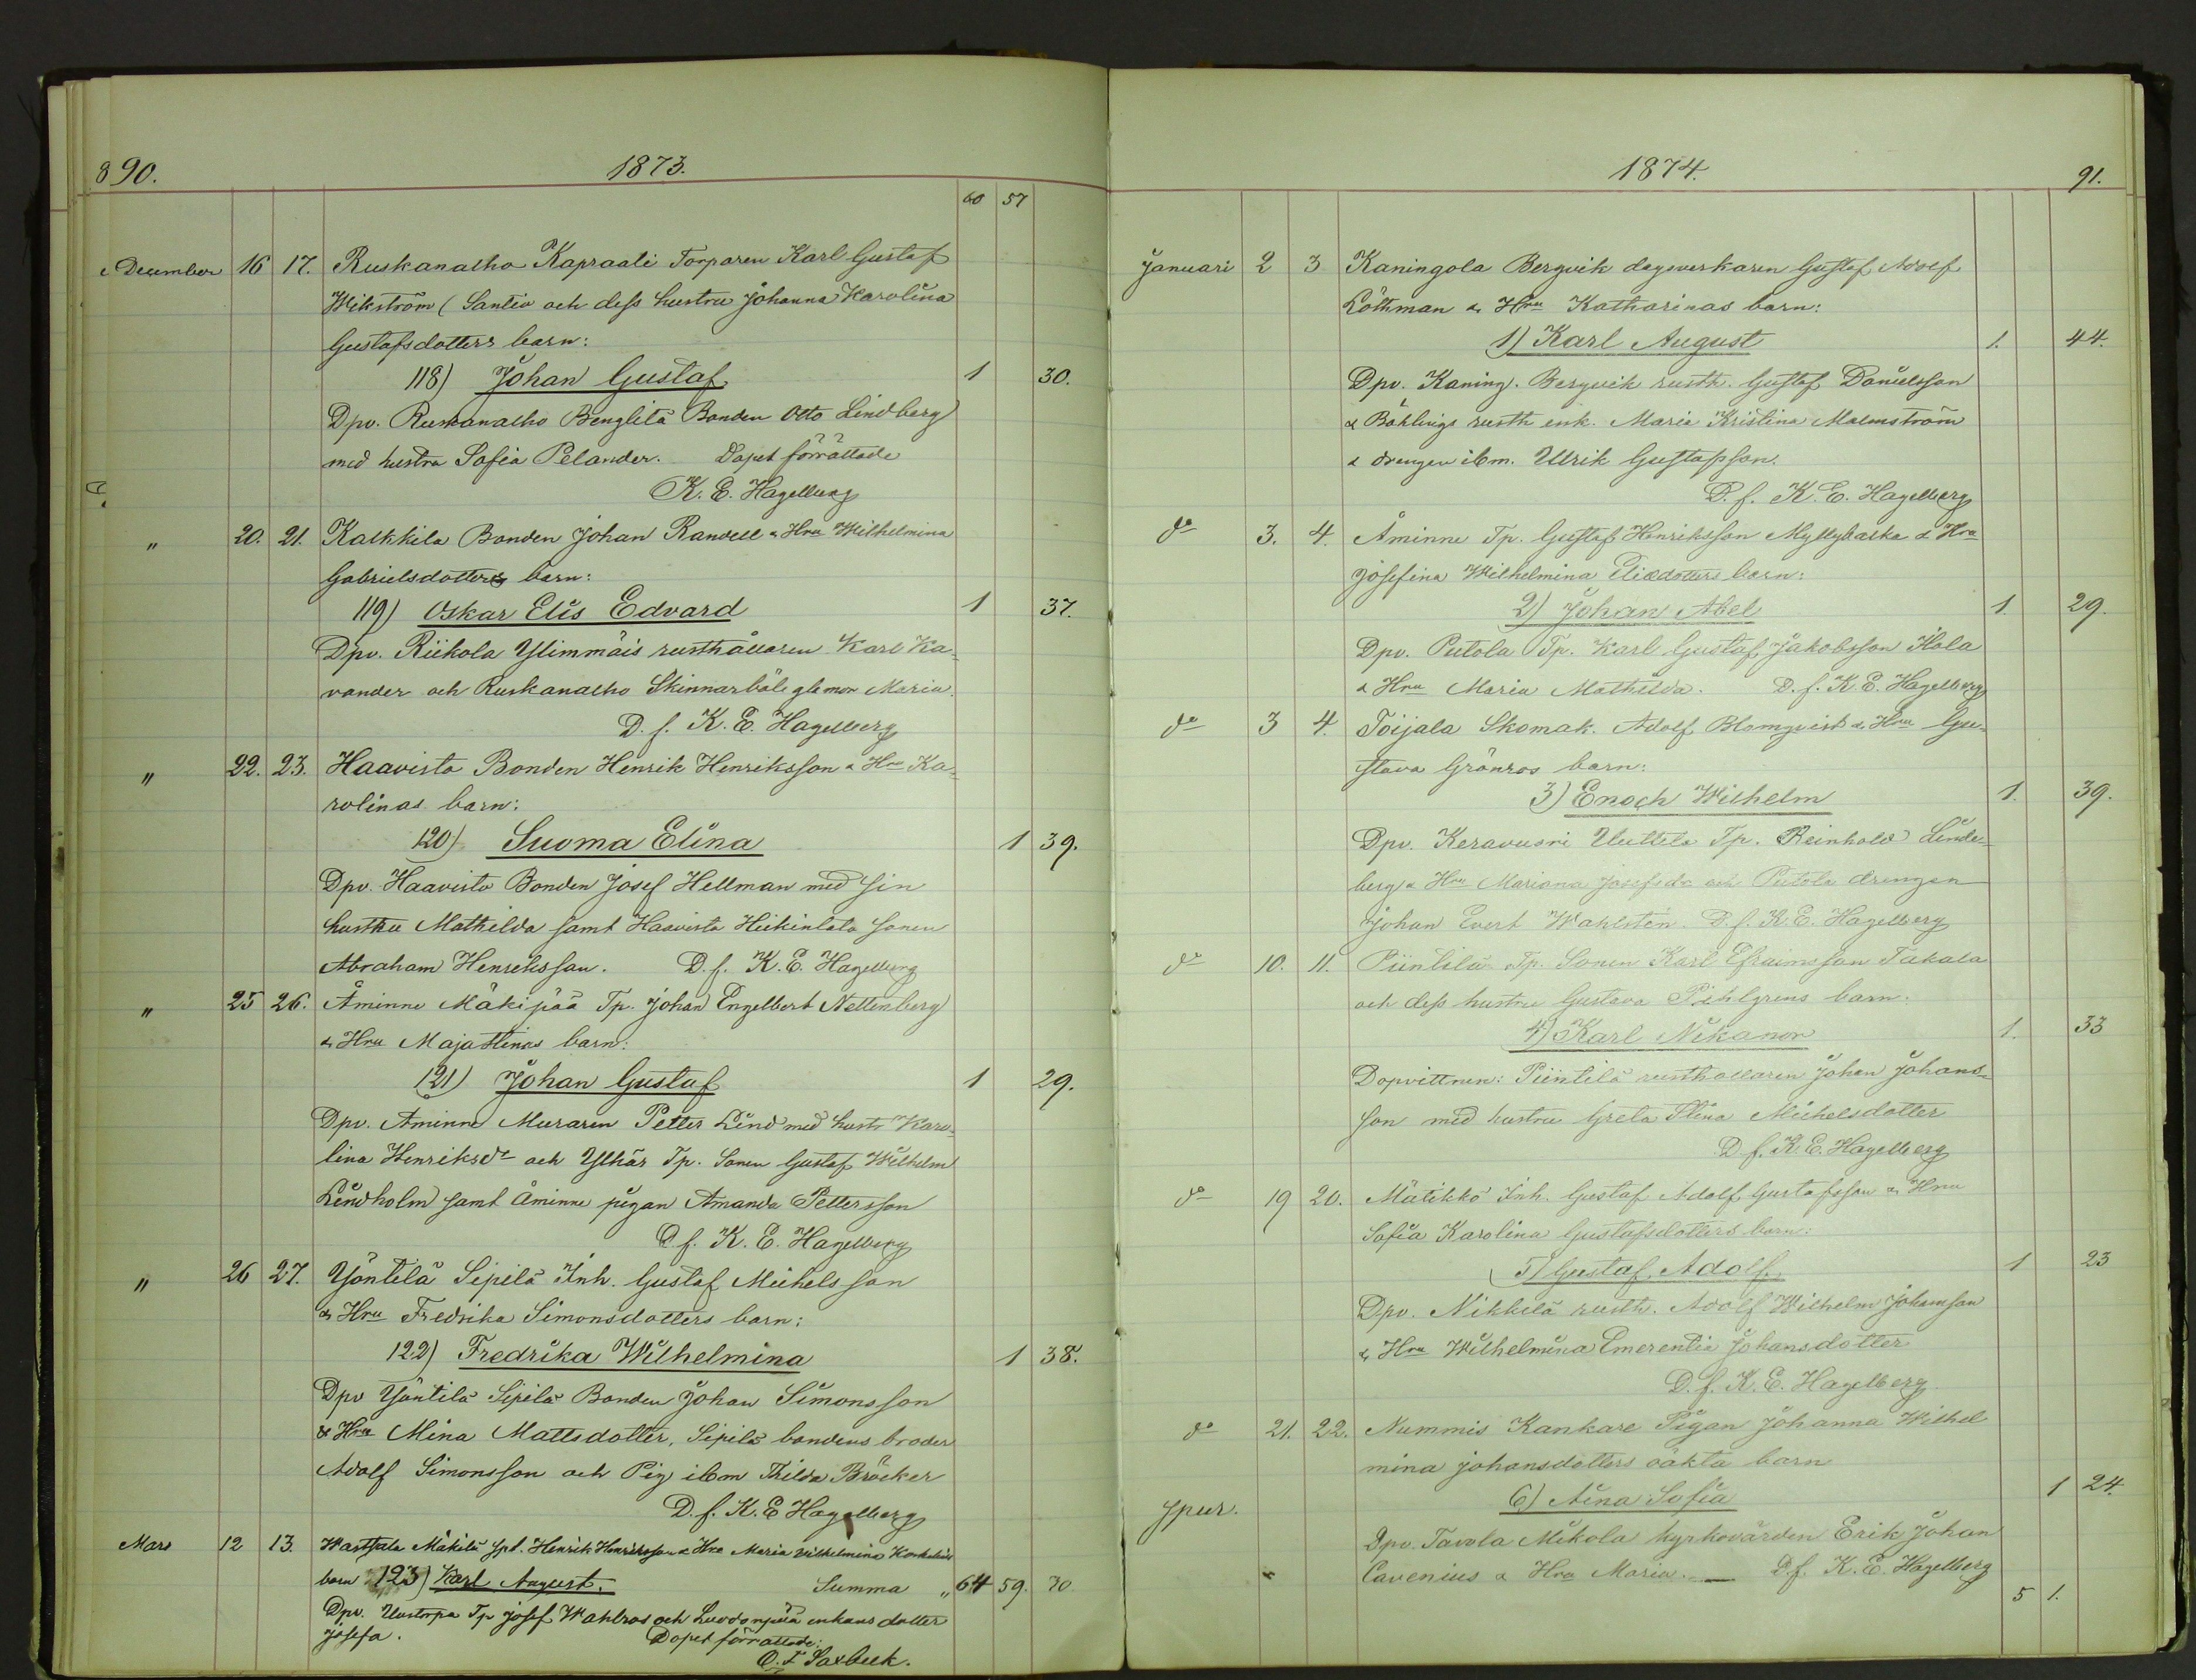 890. 1873.
60 57
December 16 17. Ruskanalho Kapraali Torparen Karl Gustaf
Wikström (Santio och dess hustru Johanna Karolina
Gustafsdotters barn:
118) Johan Gustaf 1 30.
Dpv. Ruskanalho Benglilä Bonden Otto Lindberg
med hustru Sofia Pelander. Dopet förrättade
K. E. Hagelberg
" 20. 21. Kalkkila Bonden Johan Randell & Hru Wilhelmina
Gabrielsdotters barn:
119) Oskar Elis Edvard 1 37.
Dpv. Riikola Ylimmäis rusthållaren Karl Ka-
vander och Ruskanalho Skinnarböle glamor Maria.
D. f. K. E. Hagelberg
" 22. 23. Haavisto Bonden Henrik Henriksson & Hru Ka-
rolinas barn:
120) Suoma Elina 1 39.
Dpv. Haavisto Bonden Josef Hellman med sin
hustru Mathilda samt Haavisto Heikintalo sonen
Abraham Henriksson. D. f. K. E. Hagelberg
" 25 26. Åminne Mäkipää Tp. Johan Engelbert Nettenberg
& Hru Maja Stinas barn:
121) Johan Gustaf 1 29.
Dpv. Åminne Muraren Petter Lind med hustr Karo-
lina Henriksdr och Ylhäs Tp. Sonen Gustaf Wilhelm
Lindholm samt Åminne pigan Amanda Pettersson
D. f. K. E. Hagelberg
" 26 27. Yöntilä Sipilä Inh. Gustaf Michelsson
& Hru Fredrika Simonsdotters barn:
122) Fredrika Wilhelmina 1 38.
Dpv Yöntilä Sipilä Bonden Johan Simonsson
& Hru Mina Mattsdotter, Sipilä bondens broder
Adolf Simonsson och Pig ibm Thilda Bröcker
D. f. K. E Hagelberg
Mars 12 13. Mäkilä Henrik Henriksson & Hru Maria Wilhelmina
barn 123) Karl August. Summa " 64 59. 70
Dpv. Tp Josef Wahlros och enkans dotter
Josefa. Dopet förrättade:
O. I. Saxbeck.
1874. 91.
Januari 2 3 Kaningola Bergvik dagsverkaren Gustaf Adolf
Löthman & Hru Katharinas barn:
1) Karl August 1. 44.
Dpv. Kaning. Bergvik rusth. Gustaf Danielsson
& Böhlings rusth enk. Maria Kristina Malmström
& drengen ibm. Ulrik Gustafsson.
D. f. K. E. Hagelberg
do 3. 4. Åminne Tp. Gustaf Henriksson Myllykaska & Hru
Josefina Wilhelmina Eliædotters barn:
2) Johan Abel 1 29.
Dpv. Putola Tp. Karl Gustaf Jakobsson Hola
& Hru Maria Mathilda. D. f. K. E. Hagelberg
do 3 4. Toijala Skomak. Adolf Blomqvist & Hru Gu-
stava Grönros barn:
3) Enoch Wilhelm 1. 39.
Dpv. Keravuori Uuttela Tp. Reinhold Linde-
berg & Hru Mariana Josefsdr och Putola drengen
Johan Evert Wahlsten. D. f. K. E. Hagelberg
do 10. 11. Piintilä Tp. Sonen Karl Efraimsson Takala
och dess hustru Gustava Pihlgrens barn:
4) Karl Nikanor 1. 33
Dopvittnen: Piintilä rusthållaren Johan Johans-
son med hustru Greta Stina Michelsdotter
D. f. K. E. Hagelberg
do 19 20. Mätikkö Inh. Gustaf Adolf Gustafsson & Hru
Sofia Karolina Gustafsdotters barn:
5) Gustaf Adolf 1 23
Dpv. Nikkilä rusth. Adolf Wilhelm Johansson
& Hru Wilhelmina Emerentia Johansdotter
D. f. K. E. Hagelberg
do 21. 22. Nummis Kankare Pigan Johanna Wilhel
mina Johansdotters oäkta barn
6) Aina Sofia 1 24.
Dpv. Tavola Mikola kyrkovärden Erik Johan
Cavenius & Hru Maria. — D. f. K. E. Hagelberg
5 1.